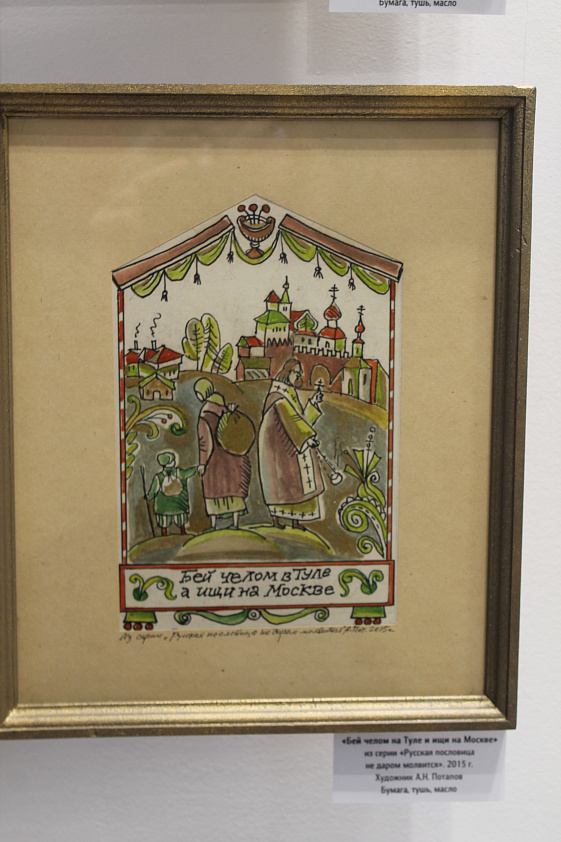 Бумага, тушь, масло
Бей челом в Туле
а ищи на Москве
Из серии „Русская пословица не даром молвится" 2015г.
«Бей челом на Туле и ищи на Москве»
из серии «Русская пословица
не даром молвится». 2015 г.
Художник А.Н. Потапов
Бумага, тушь, масло